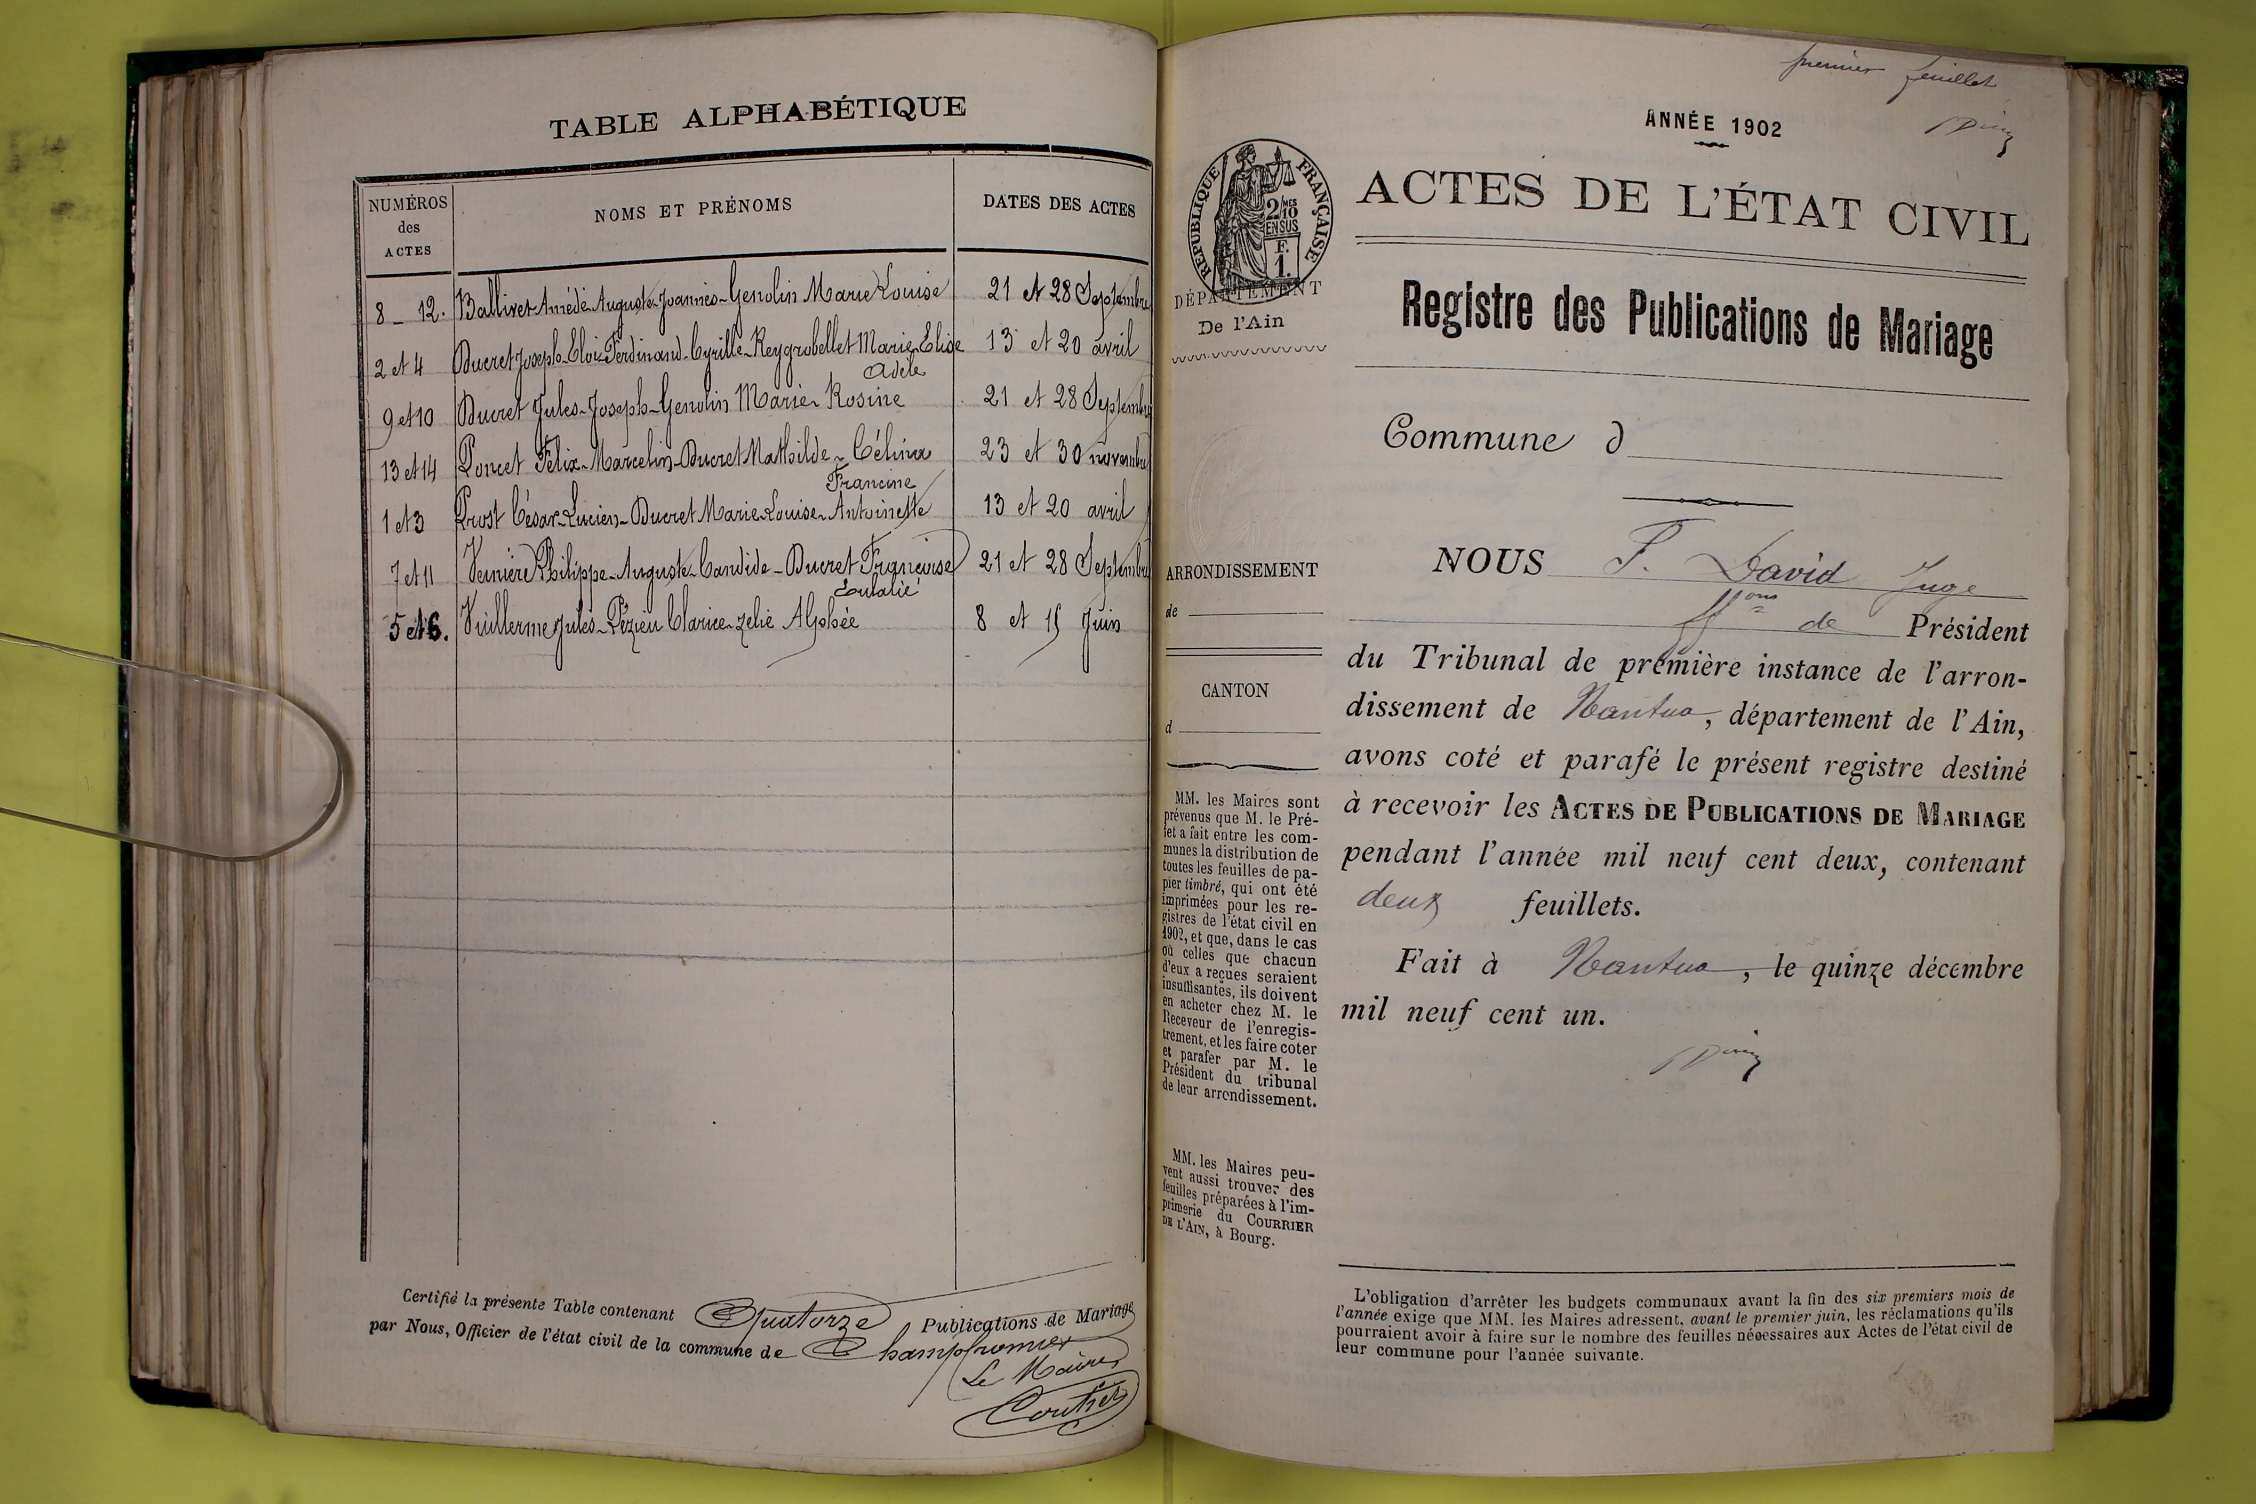 TABLE ALPHABÉTIQUE
NUMÉROS
des
ACTES
NOMS ET PRÉNOMS
DATES DES ACTES
8 _ 12. Ballivet Amédé Auguste Joannès - Genolin Marie Louise 21 et 28 Septembre
2 et 4 Ducret Joseph-Eloi-Ferdinand-Cyrille-Reygrobellet Marie-Elise 13 et 20 avril
Adèle
9 et 10 Ducret Jules-Joseph-Genolin Marie-Rosine 21 et 28 Septembre
13 et 14 Poncet Félix-Marcelin-Ducret Mathilde-Célina 23 et 30 novembre
Francine
1 et 3 Prost César-Lucien-Ducret Marie-Louise-Antoinette 13 et 20 avril
7 et 11 Philippe-Auguste-Candide-Ducret Françoise 21 et 28 Septembre
Eulalie
5 et 6. Vuillerme Jules-Pézieu Clarice-zelie Alphée 8 et 15 Juin
Certifié la présente Table contenant Quatorze Publications de Mariage
par Nous, Officier de l'état civil de la commune de Champfromier
Le Maire
Coutier
premier feuillet
ANNÉE 1902
RÉPUBLIQUE FRANÇAISE
2/10 MES
EN SUS
F.
1.
DÉPARTEMENT
De l'Ain
ACTES DE L'ÉTAT CIVIL
Registre des Publications de Mariage
Commune d
ARRONDISSEMENT
de
CANTON
d
MM. les Maires sont
prévenus que M. le Pré-
fet a fait entre les com-
munes la distribution de
toutes les feuilles de pa-
pier timbré, qui ont été
imprimées pour les re-
gistres de l'état civil en
1902, et que, dans le cas
où celles que chacun
d'eux a reçues seraient
insuffisantes, ils doivent
en acheter chez M. le
Receveur de l'enregis-
trement, et les faire coter
et parafer par M. le
Président du tribunal
de leur arrondissement.
MM. les Maires peu-
vent aussi trouver des
feuilles préparées à l'im-
primerie du COURRIER
DE L'AIN, à Bourg.
NOUS P. David Juge
ffons de Président
du Tribunal de première instance de l'arron-
dissement de Nantua, département de l'Ain,
avons coté et parafé le présent registre destiné
à recevoir les ACTES DE PUBLICATIONS DE MARIAGE
pendant l'année mil neuf cent deux, contenant
deux feuillets.
Fait à Nantua, le quinze décembre
mil neuf cent un.
L'obligation d'arrêter les budgets communaux avant la fin des six premiers mois de
l'année exige que MM. les Maires adressent, avant le premier juin, les réclamations qu'ils
pourraient avoir à faire sur le nombre des feuilles nécessaires aux Actes de l'état civil de
leur commune pour l'année suivante.